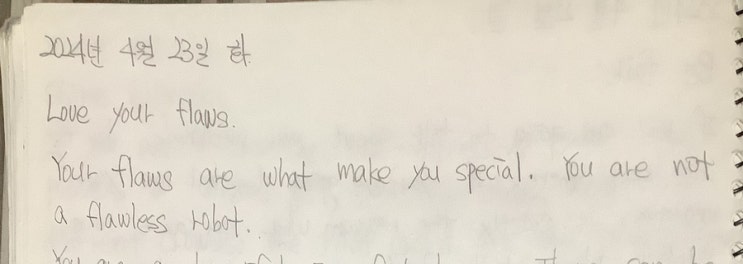 2024년 4월 23일 화
Love your flaws.
Your flaws are what make you special. You are not
a flawless robot.
You are a